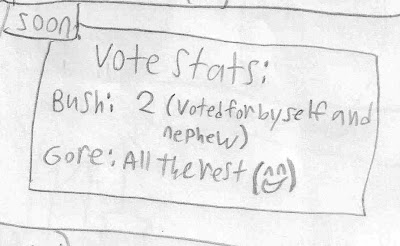 SOON
Vote Stats:
Bush: 2 (Voted for by self and
nephew)
Gore: All the rest (^^)